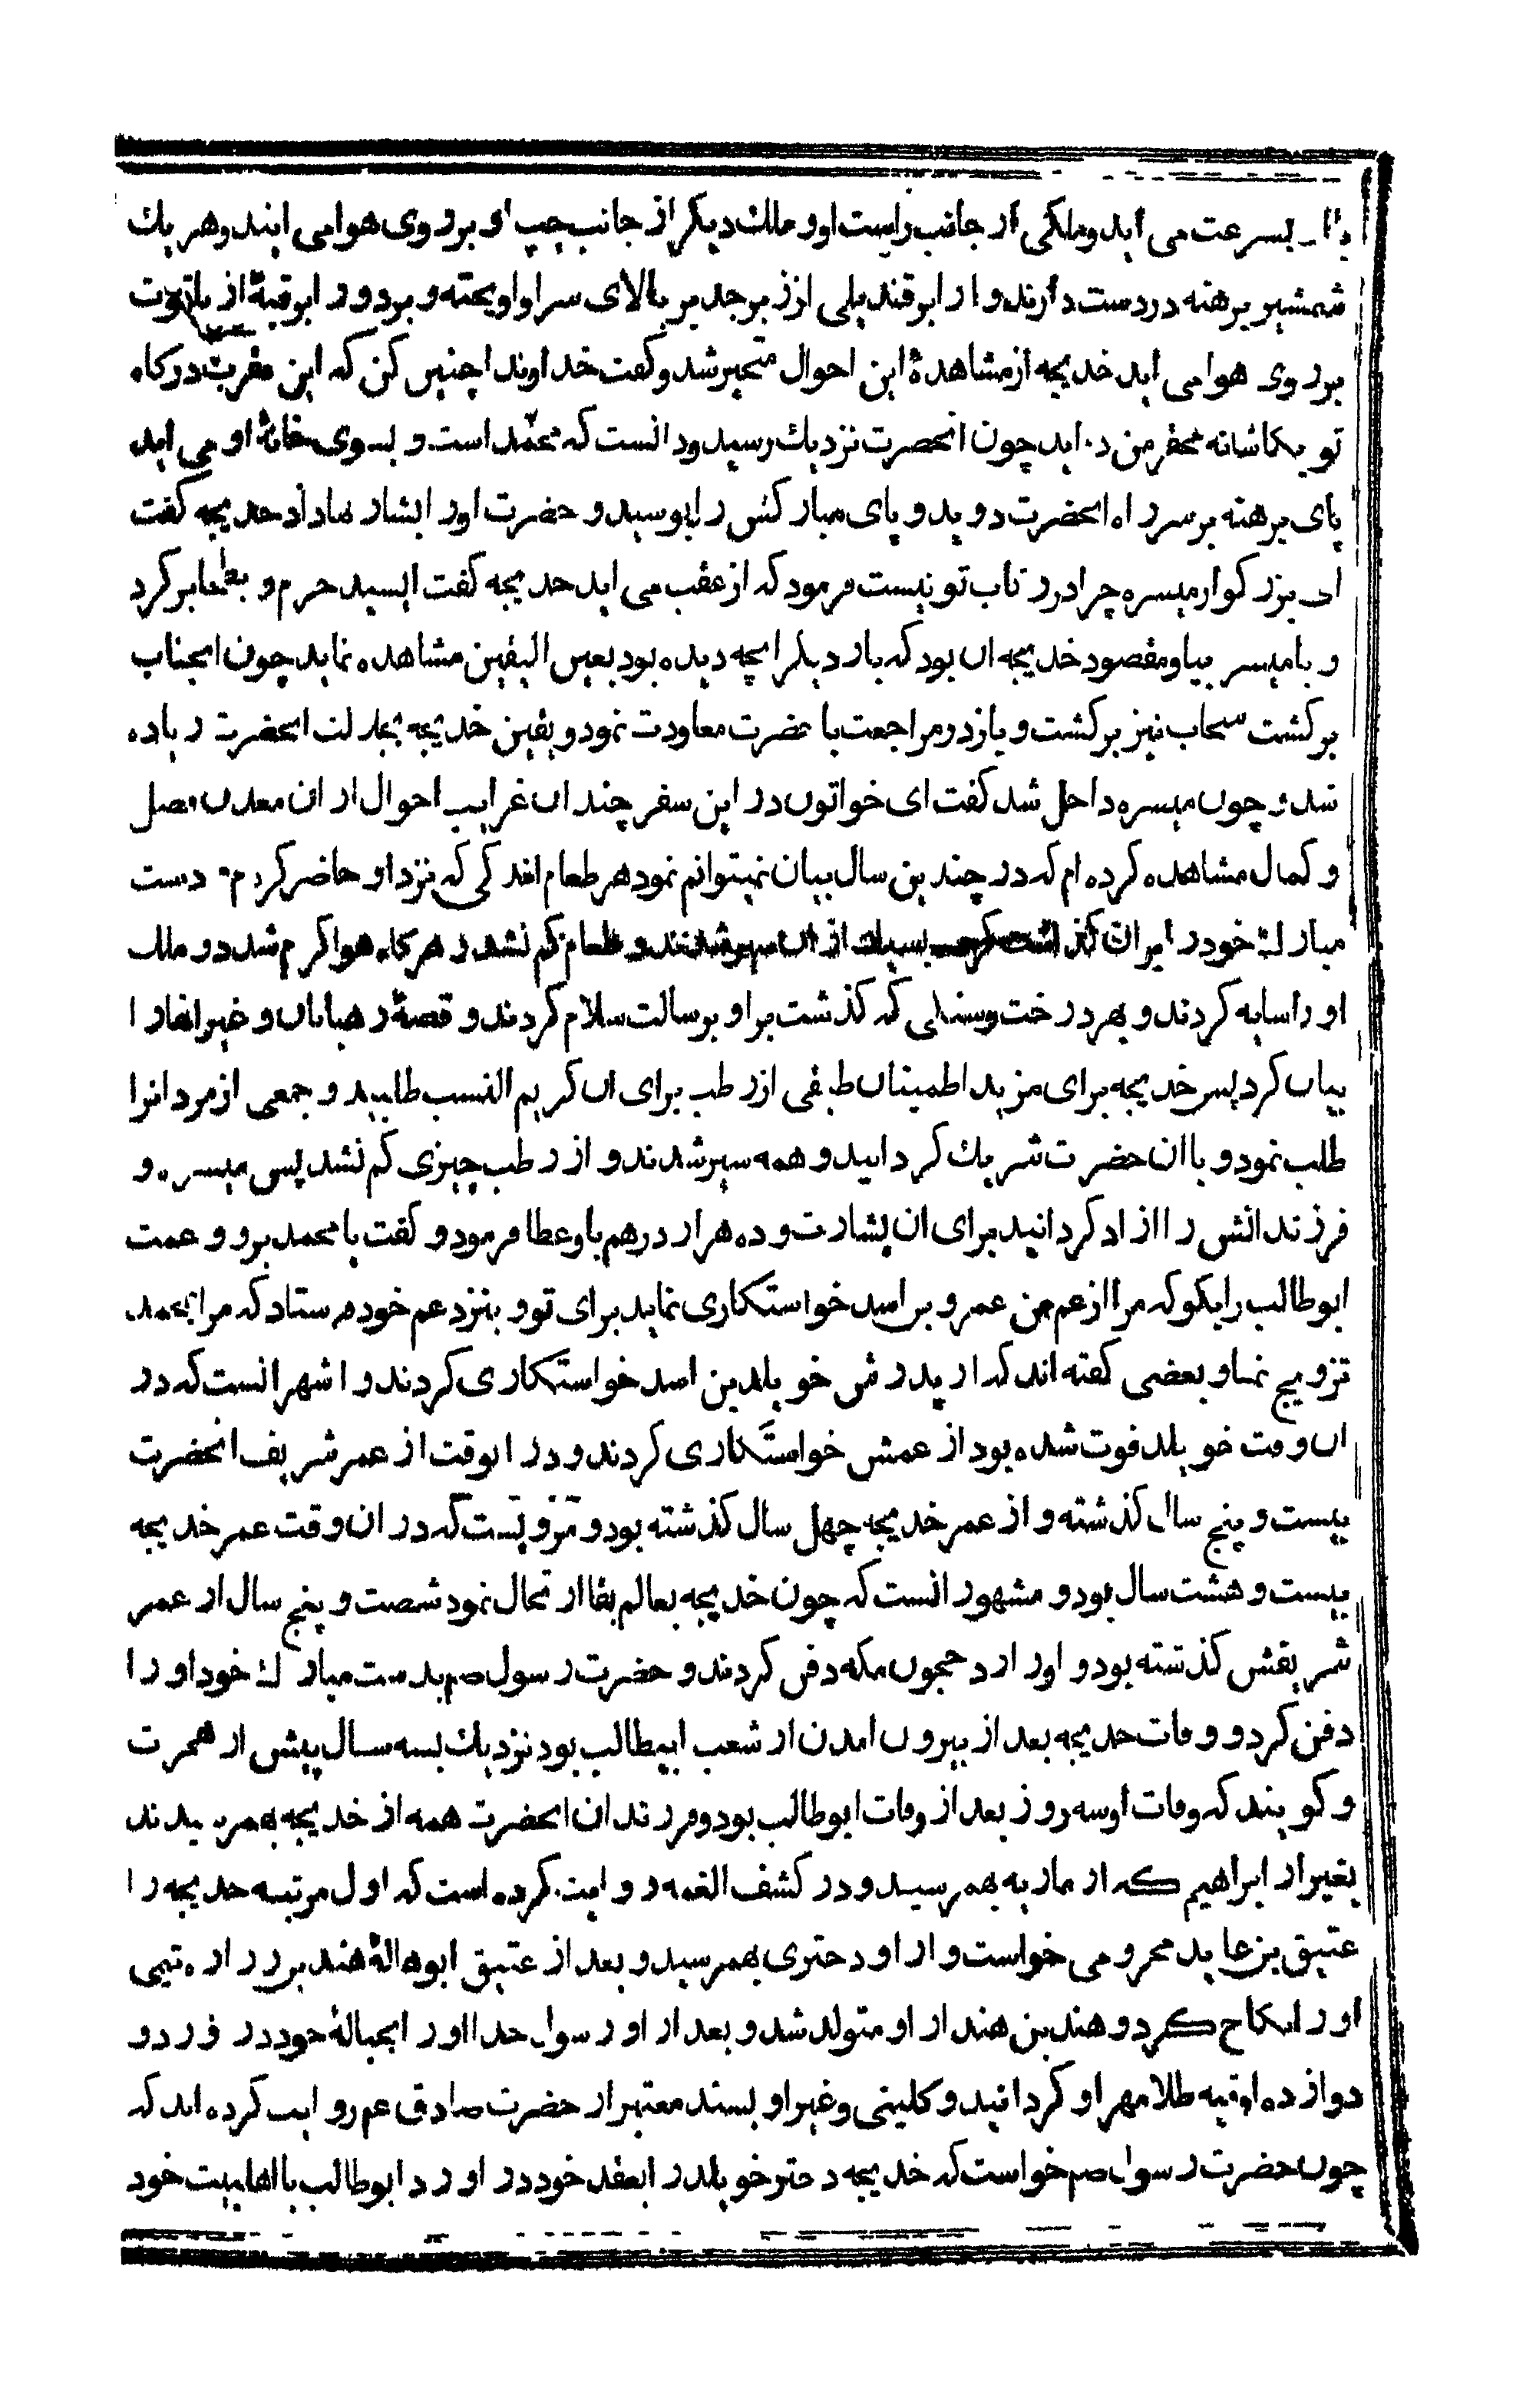 بسرعت می اید و ملکی از جانب راست او و ملك دیکر از جانب چپ او بر روی هوا می ایند و هر یك
شمشیر برهنه در دست دارند و از ابر قندیلی از زبرجد بر بالای سر او اویخته و بر دور ابر قبهٔ از یاقوت
بر روی هوا می اید خدیجه از مشاهدهٔ این احوال متحیر شد و کفت خداوندا چنین کن که این مقرب درکاه
تو بکاشانه محقر من در اید چون انحضرت نزدیك رسید و دانست که محمّد است و بسوی خانهٔ او می اید
پای برهنه بر سر راه انحضرت دوید و پای مبارکش را بوسید و حضرت او را بشارتها داد خدیجه کفت
ای بزرکوار میسره چرا در رکاب تو نیست فرمود که از عقب می اید خدیجه کفت ای سید حرم و بطحا برکرد
و با میسره بیا و مقصود خدیجه ان بود که بار دیکر انچه دیده بود بعین الیقین مشاهده نماید چون انجناب
برکشت سحاب نیز برکشت و باز در مراجعت با حضرت معاودت نمود و یقین خدیجه بجلالت انحضرت زیاده
شد و چون میسره داخل شد کفت ای خواتون در این سفر چندان غرایب احوال از ان معدن فضل
و کمال مشاهده کرده ام که در چندین سال بیان نمیتوانم نمود هر طعام اندکی که نزد او حاضر کردم دست
مبارك خود در ان کذاشت کروه بسیار از ان سیر شدند و طعام کم نشد و هر کاه هوا کرم شد دو ملك
او را سایه کردند و بهر درخت و سنکی که کذشت بر او برسالت سلام کردند و قصهٔ رهبانان و غیر انها را
بیان کرد پس خدیجه برای مزید اطمینان طبقی از رطب برای ان کریم النسب طلبید و جمعی از مردانرا
طلب نمود و با ان حضرت شریك کردانید و همه سیر شدند و از رطب چیزی کم نشد پس میسره و
فرزندانش را ازاد کردانید برای ان بشارت و ده هزار درهم باو عطا فرمود و کفت یا محمد برو و عمت
ابو طالب را بکو که مرا از عم من عمرو بن اسد خواستکاری نماید برای تو و بنزد عم خود فرستاد که مرا بمحمد
تزویج نما و بعضی کفته اند که از پدرش خویلد بن اسد خواستکاری کردند و اشهر انست که در
ان وقت خویلد فوت شده بود از عمش خواستکاری کردند و در انوقت از عمر شریف انحضرت
بیست و پنج سال کذشته و از عمر خدیجه چهل سال کذشته بود و مرویست که در ان وقت عمر خدیجه
بیست و هشت سال بود و مشهور انست که چون خدیجه بعالم بقا ارتحال نمود شصت و پنج سال از عمر
شریفش کذشته بود و او را در حجون مکه دفن کردند و حضرت رسول صم بدست مبارك خود او را
دفن کرد و وفات خدیجه بعد از بیرون امدن از شعب ابیطالب بود نزدیك بسه سال پیش از هجرت
و کویند که وفات او سه روز بعد از وفات ابو طالب بود و فرزندان انحضرت همه از خدیجه بهمرسیدند
بغیر از ابراهیم که از ماریه بهمرسید و در کشف الغمه روایت کرده است که اول مرتبه خدیجه را
عتیق بن عاید مخزومی خواست و از او دختری بهمرسید و بعد از عتیق ابو هالهٔ هند بن زراره تیمی
او را نکاح کرد و هند بن هند از او متولد شد و بعد از او رسول خدا او را بحبالهٔ خود در اورد و
دوازده اوقیه طلا مهر او کردانید و کلینی و غیر او بسند معتبر از حضرت صادق عم روایت کرده اند که
چون حضرت رسول صم خواست که خدیجه دختر خویلد را بعقد خود در اورد ابو طالب با اهلبیت خود